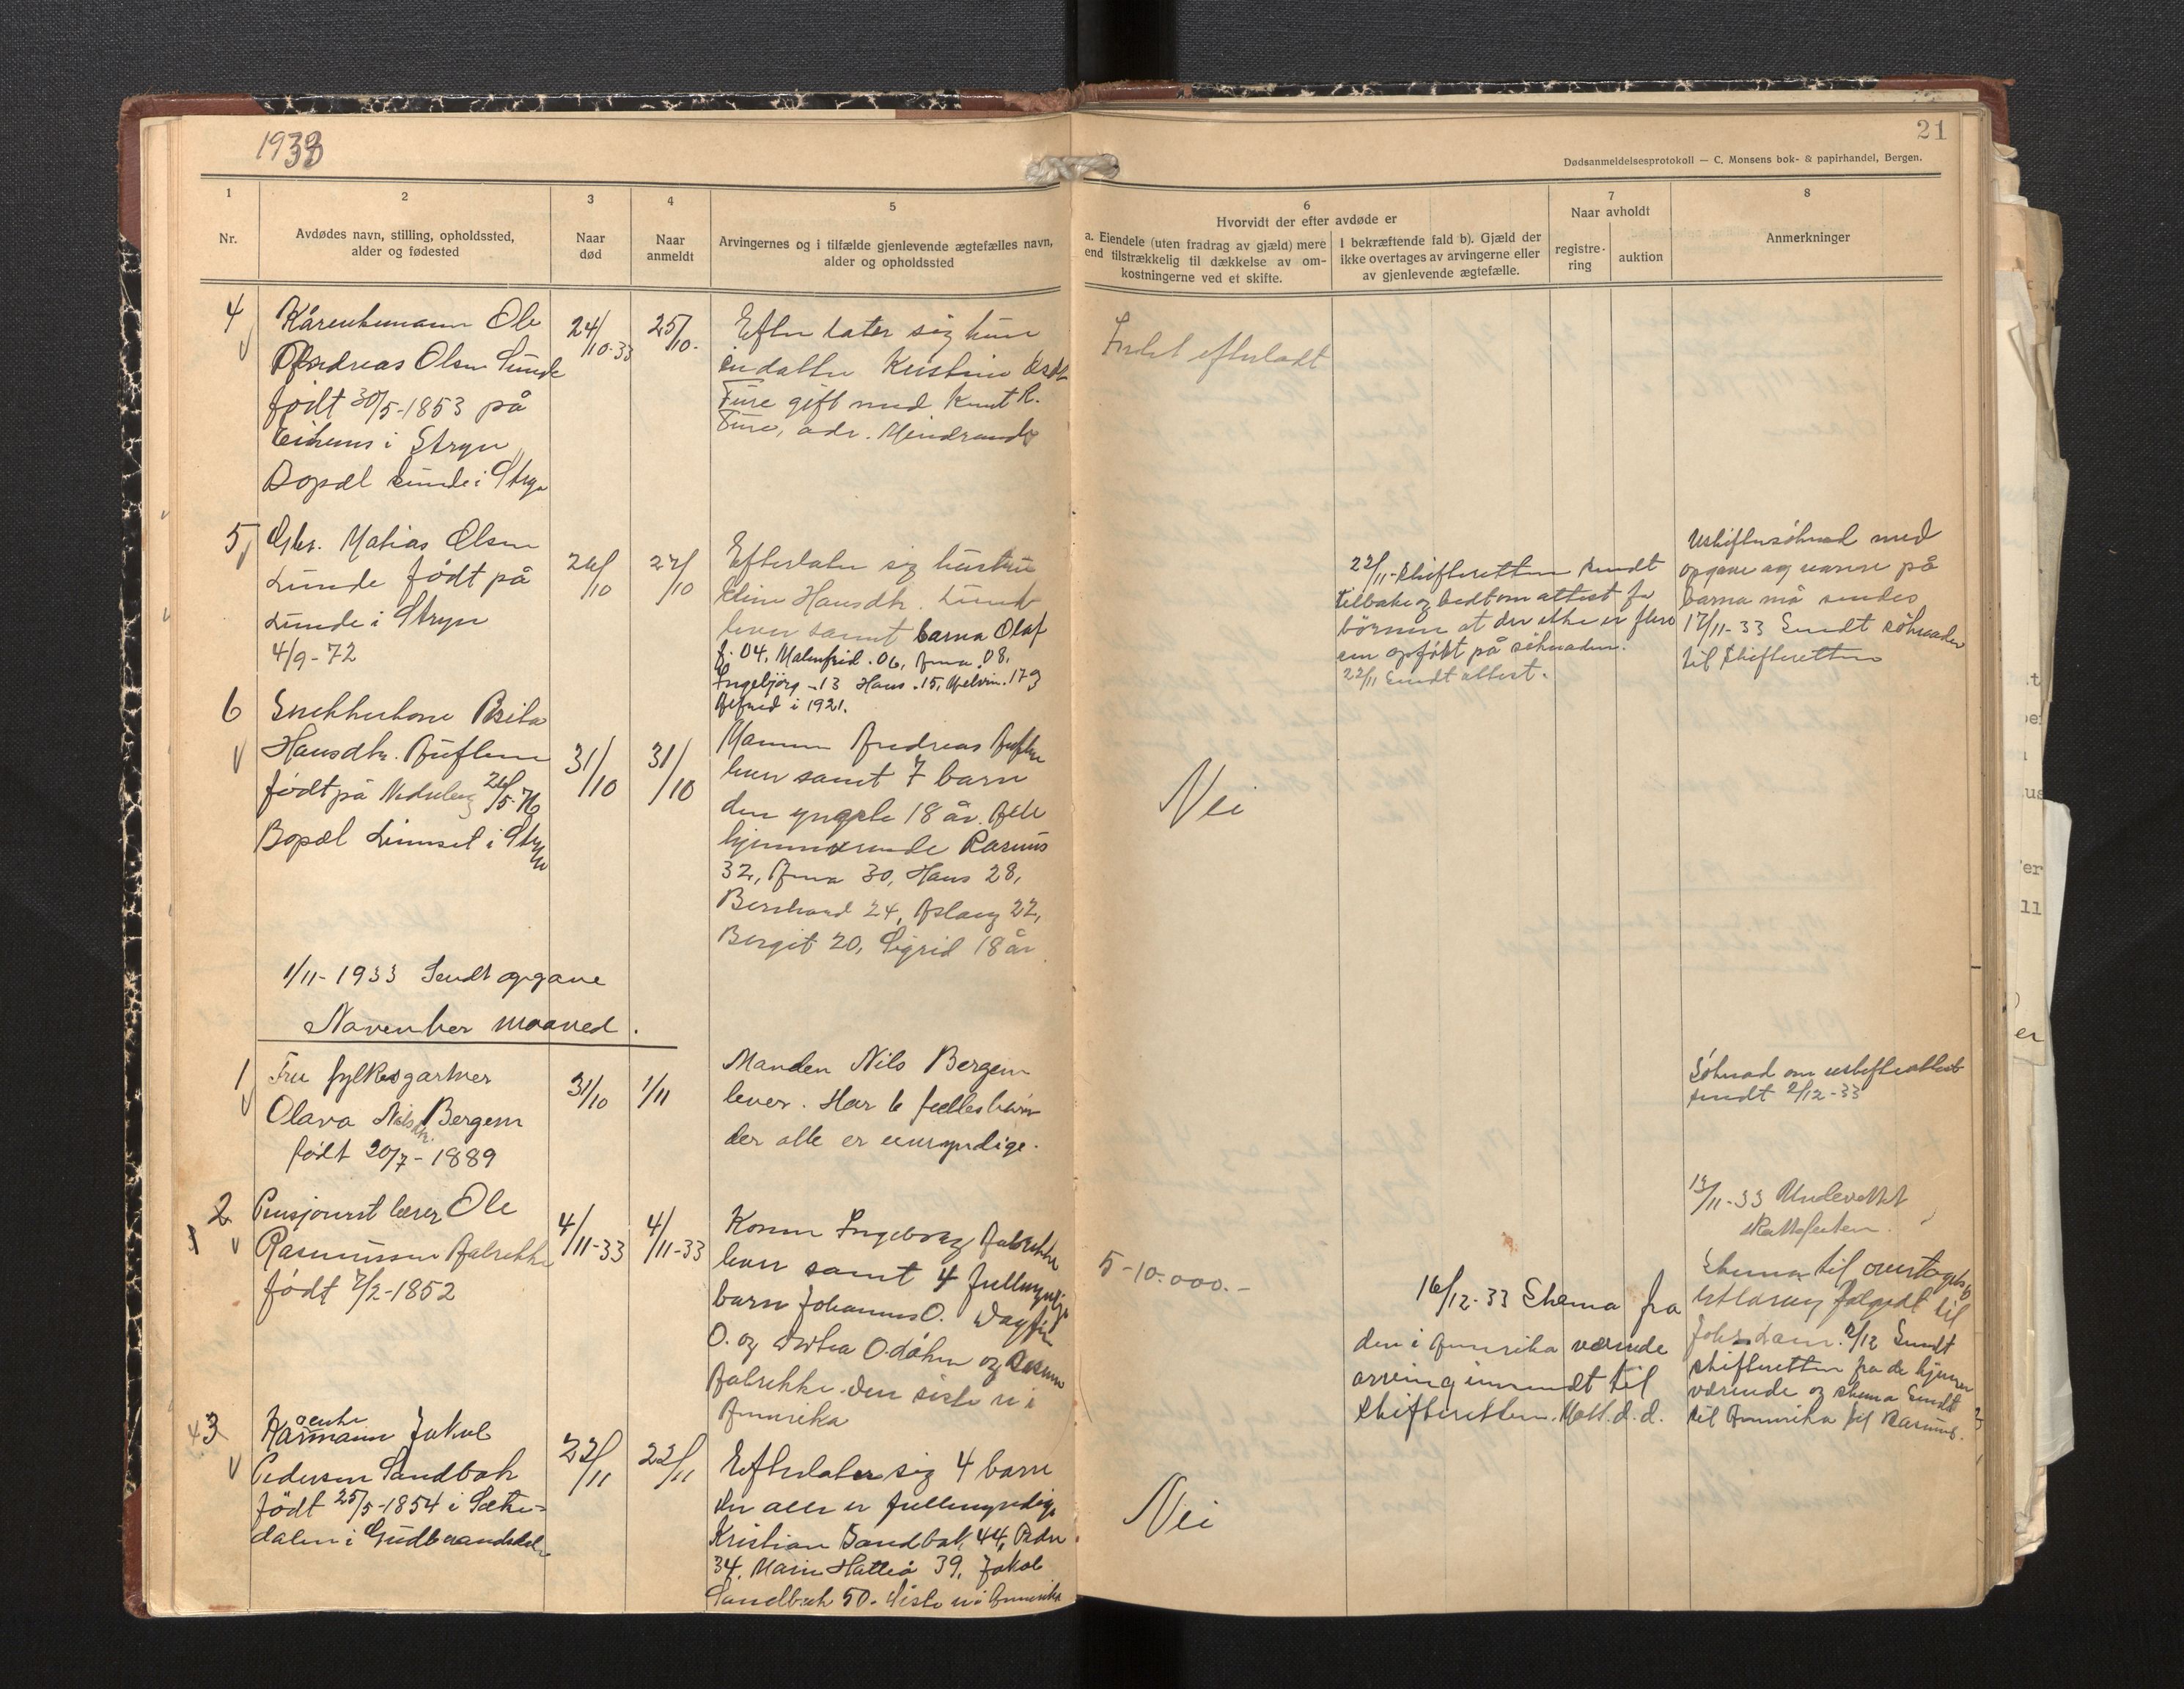 1933
21
Dødsanmeldelsesprotokoll — C. Monsens bok- & papirhandel, Bergen.
1
2
3
4
5
6
7
8
Nr.
Avdødes navn, stilling, opholdssted,
alder og fødested
Naar
død
Naar
anmeldt
Arvingernes og i tilfælde gjenlevende ægtefælles navn,
alder og opholdssted
Hvorvidt der efter avdøde er
a. Eiendele (uten fradrag av gjæld) mere
end tilstrækkelig til dækkelse av om-
kostningerne ved et skifte.
I bekræftende fald b). Gjæld der
ikke overtages av arvingerne eller
av gjenlevende ægtefælle.
Naar avholdt
registre-
ring
auktion
Anmerkninger
4
Kårenkemann Ole
Andreas Olsen Sunde
født 30/5-1853 på
i Stryn
Bopæl Sunde i Stryn
24/10-33
25/10.
Efterlater sig kun
en datter Kristine
Fure gift med Knut R.
Fure, adr. Mindresunde
Intet efterladt
5
Gbr. Matias Olsen
Lunde født på
Lunde i Stryn
4/9-72
26/10
27/10
Efterlater sig hustru
Eline Hansdtr. Lunde
lever samt barna Olaf
f. 04, Malmfrid .06, Anna .08,
Ingebjörg -13 Hans .15, Melvin .17 og
Alfred i 1921.
22/11- Skifteretten sendt
tilbake og bedt om attest for
börnene at der ikke er flere
enn opført på söknaden.
22/11 Sendt attest.
Uskiftesöknad med
opgave og navne på
barna må sendes
17/11-33 Sendt söknaden
til skifteretten
6
Snekkerkone Brita
Hansdtr. Auflem
født på 26/5-76
Bopæl i Stryn
31/10
31/10
Mannen Andreas Auflem
lever samt 7 barn
den yngste 18 år. Alle
hjemmværende Rasmus
32, Anna 30, Hans 28,
Bernhard 24, Aslaug 22,
Bergit 20, Sigrid 18 år.
Nei
1/11-1933 Sendt opgave
November maaned.
1
Fru fylkesgartner
Olava Nilsdtr. Bergem
født 20/7-1889
31/10
1/11
Manden Nils Bergem
lever. Har 6 fellesbarn
der alle er umyndige.
Söknad om uskifteattest
sendt 2/12-33
2
Pensjonist lærer Ole
Rasmussen Aabrekke
født 7/2-1852
4/11-33
4/11-33
Konen Ingeborg Aabrekke
lever samt 4 fullmyndige
barn Johannes O. Dagfin
O. og O. og Rasmus
Aabrekke. Den siste er i
Amerika
5-10.000.-
16/12-33 Skema fra
den i Amerika værende
arving innsendt til
skifteretten. d.d.
13/11-33 Underrettet
skattefuten.
Skema til overtagelses
erklæring til
2/12 Sendt
skifteretten fra de hjemme
værende og skema sendt
til Amerika til Rasmus.
3
Kårenkemann Jakob
Pedersen Sandbak
født 25/5-1854 i
dalen i Gudbrandsdalen
22/11
22/11
Efterlater sig 4 barn
der alle er fullmyndige
Kristian Sandbak 44, Peder
34, Marie 39, Jakob
Sandbak 50. Siste er i Amerika
Nei